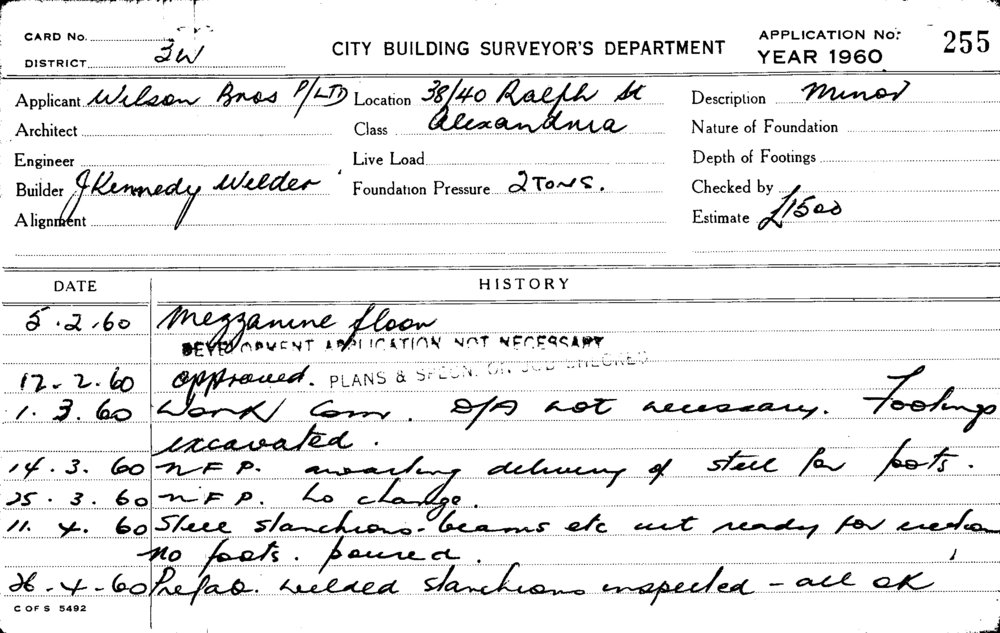 CARD No.
DISTRICT 3W
CITY BUILDING SURVEYOR'S DEPARTMENT
APPLICATION No: 255
YEAR 1960
Applicant Wilson Bros P/LTD Location 38/40 Ralph St Description Minor
Architect Class Alexandria Nature of Foundation
Engineer Live Load Depth of Footings
Builder J Kennedy Welder Foundation Pressure 2 TONS. Checked by
Alignment Estimate £1500
DATE HISTORY
5.2.60 Mezzanine floor
DEVELOPMENT APPLICATION NOT NECESSARY
12.2.60 approved. PLANS & SPECN. ON JOB CHECKED
1.3.60 Work Com. D/A not necessary. Footings
excavated.
14.3.60 N.F.P. awaiting delivery of steel for foots.
25.3.60 N.F.P. no change.
11.4.60 Steel stanchions-beams etc cut ready for erection
no foots. poured.
26-4-60 Prefab. welded stanchions inspected - all OK
C OF S 5492